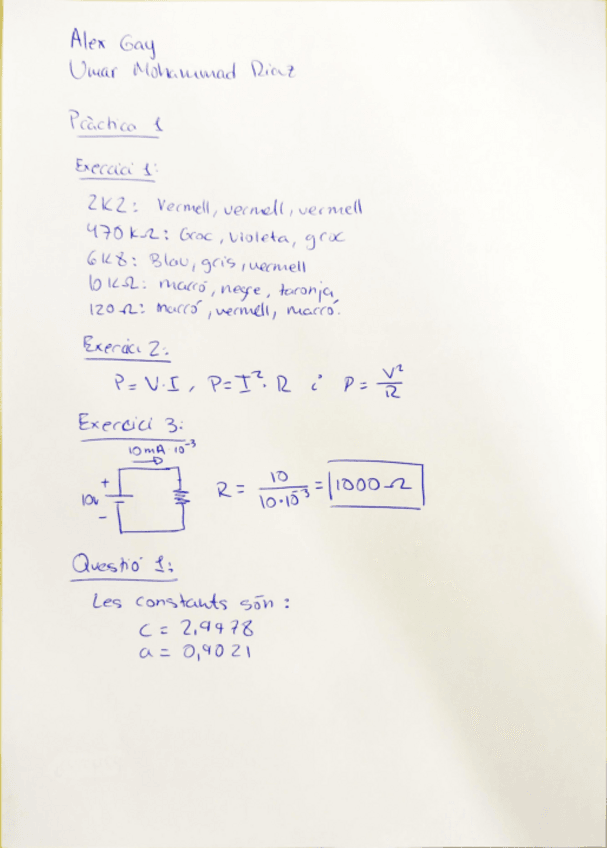 Alex Gay
Umar Mohammad Riaz
Pràctica 1
Exercici 1:
2K2: Vermell, vermell, vermell
470 KΩ: Groc, violeta, groc
6K8: Blau, gris, vermell
10 KΩ: marró, negre, taronja
120 Ω: marró, vermell, marró.
Exercici 2:
P = V·I, P = I²·R i P = V²/R
Exercici 3:
10 mA 10⁻³
+
10v
-
R = 10/10·10⁻³ = 1000 Ω
Qüestió 1:
Les constants són:
C = 2,9978
a = 0,9021